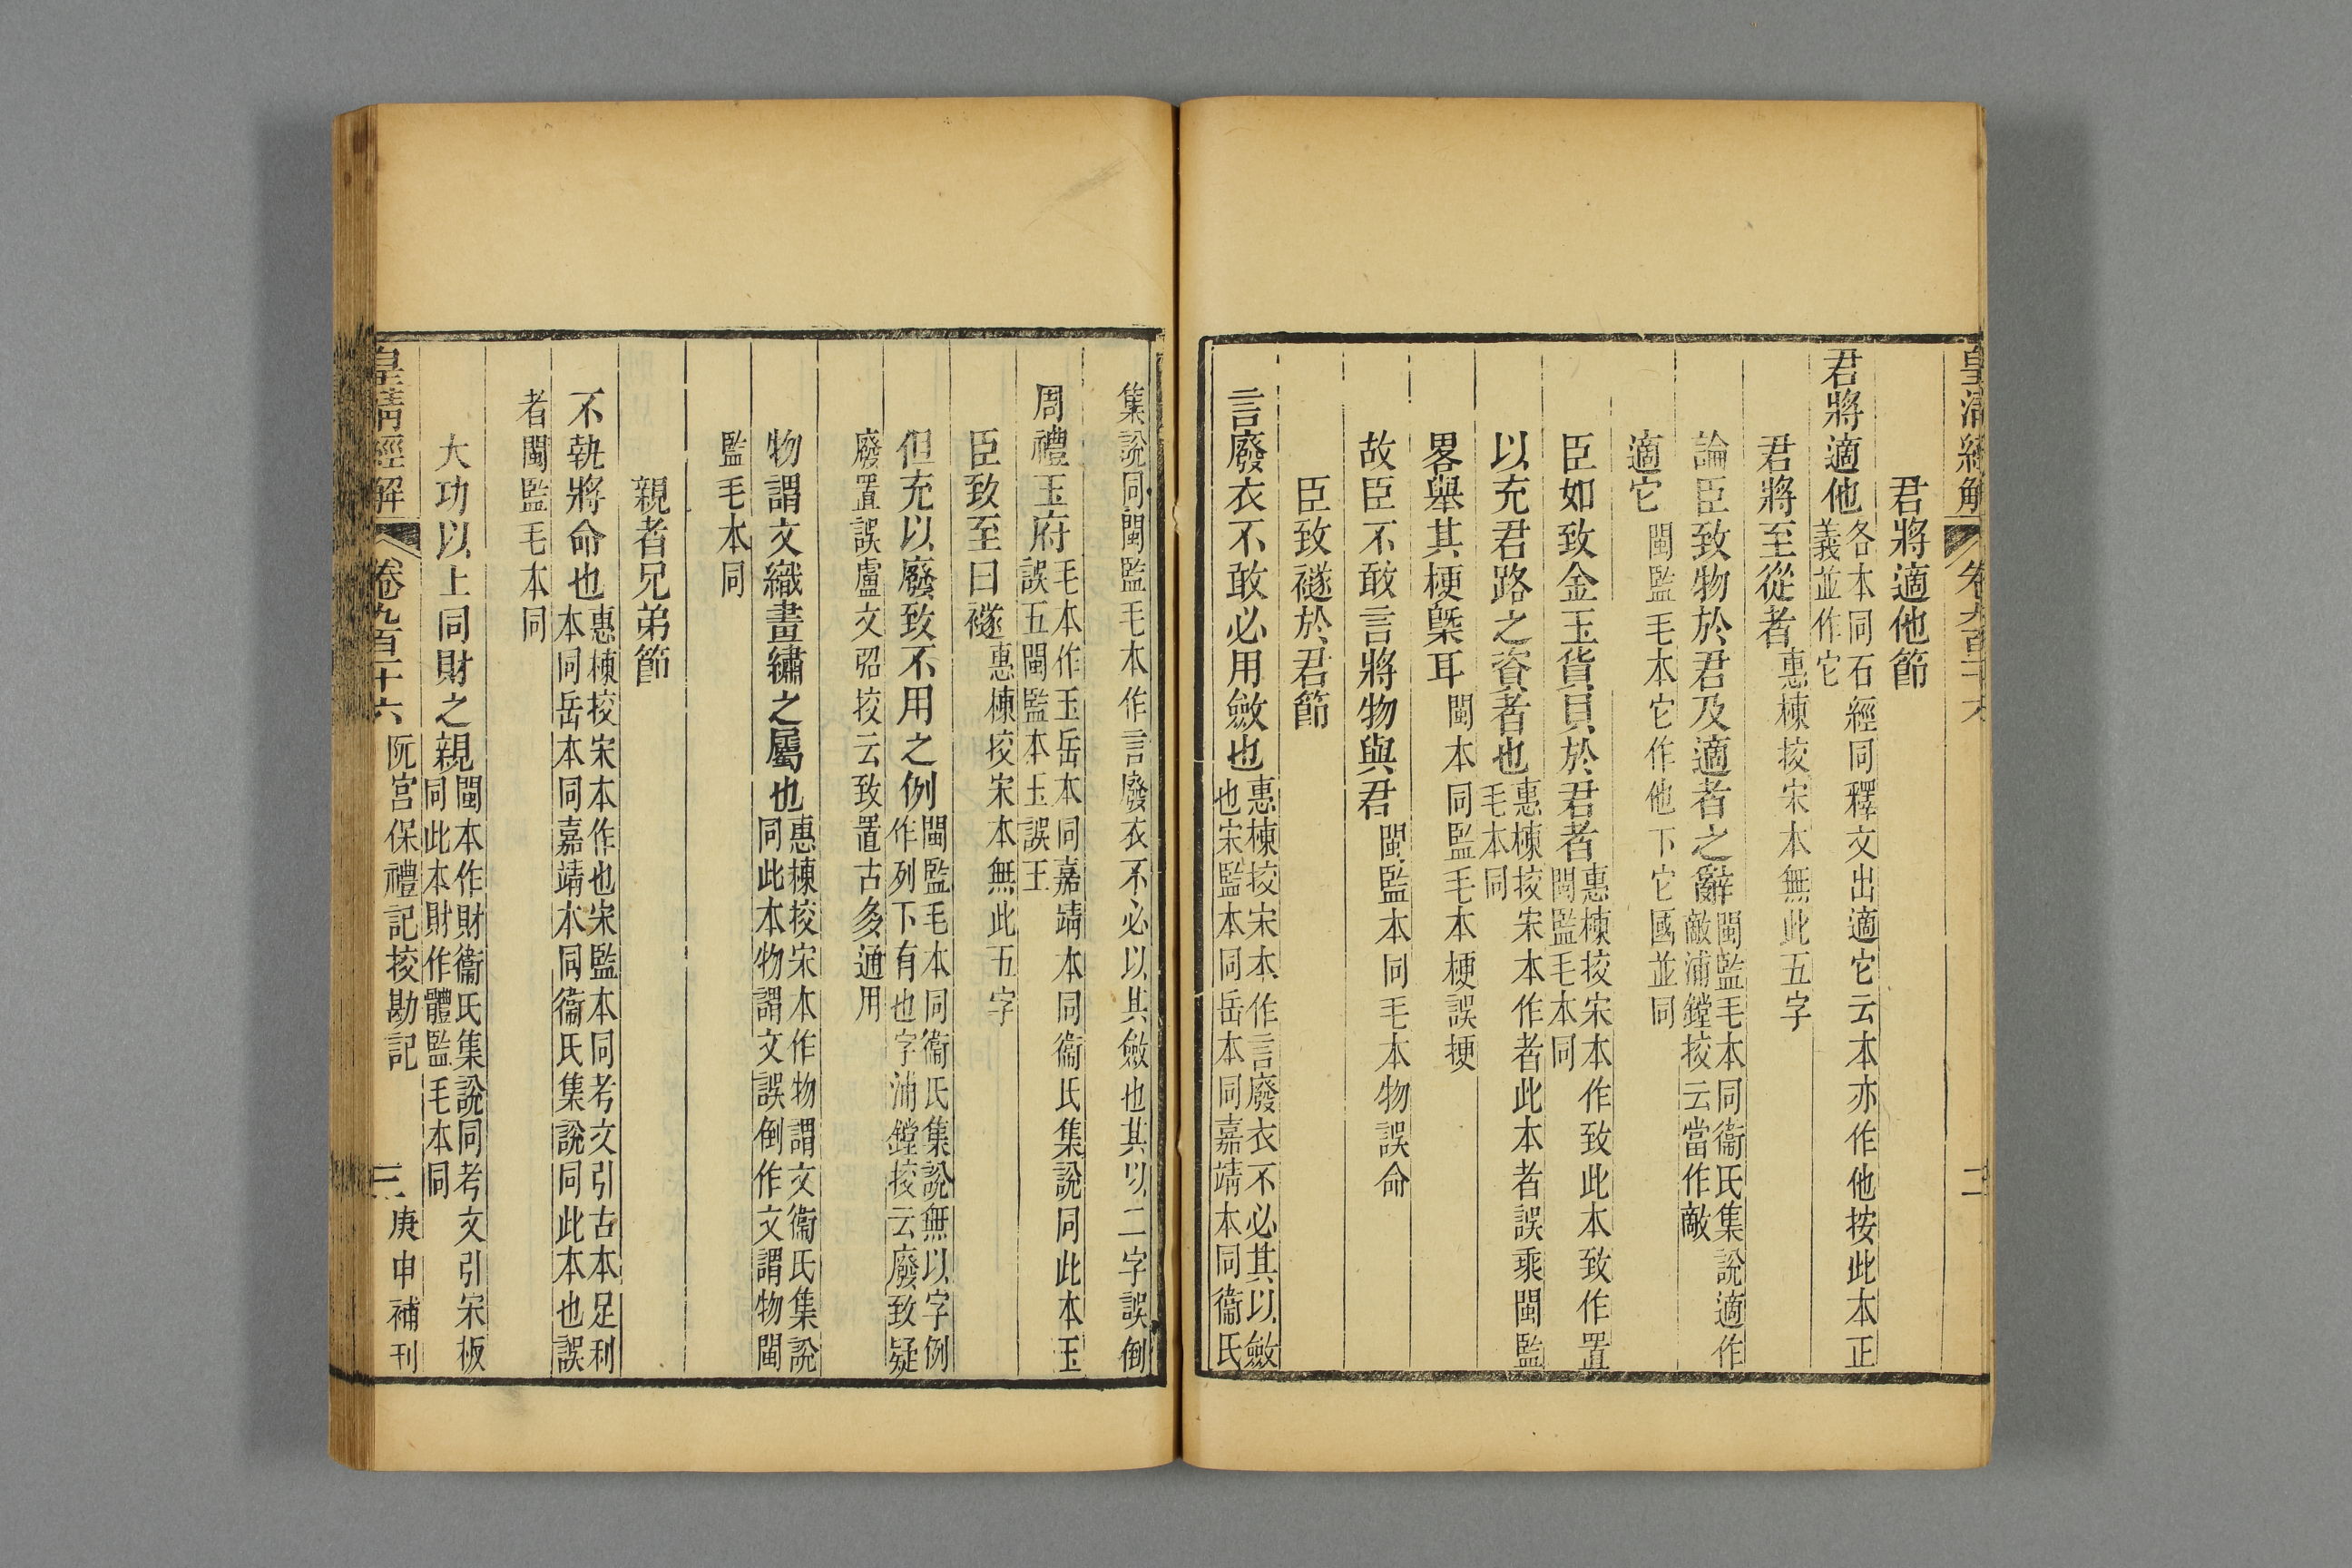 皇清經解 卷九百二十六 二
君將適他節
君將適他各本同石經同釋文出適它云本亦作他按此本正義並作它
君將至從者惠棟挍宋本無此五字
論臣致物於君及適者之辭閩監毛本同衞氏集說適作敵浦鏜挍云當作敵
適它閩監毛本它作他下它國並同
臣如致金玉貨貝於君者惠棟挍宋本作致此本致作置閩監毛本同
以充君路之資者也惠棟挍宋本作者此本者誤乘閩監毛本同
畧舉其梗槩耳閩本同監毛本梗誤挭
故臣不敢言將物與君閩監本同毛本物誤命
臣致襚於君節
言廢衣不敢必用斂也惠棟挍宋本作言廢衣不必其以斂也宋監本同岳本同嘉靖本同衞氏
集說同閩監毛本作言廢衣不必以其斂也其以二字誤倒
周禮玉府毛本作玉岳本同嘉靖本同衞氏集說同此本玉誤五閩監本玉誤王
臣致至曰襚惠棟挍宋本無此五字
但充以廢致不用之例閩監毛本同衞氏集說無以字例作列下有也字浦鏜挍云廢致疑
廢置誤盧文弨挍云致置古多通用
物謂文織畫繡之屬也惠棟挍宋本作物謂文衞氏集說同此本物謂文誤倒作文謂物閩
監毛本同
親者兄弟節
不執將命也惠棟挍宋本作也宋監本同考文引古本足利本同岳本同嘉靖本同衞氏集說同此本也誤
者閩監毛本同
大功以上同財之親閩本作財衞氏集說同考文引宋板同此本財作體監毛本同
皇清經解 卷九百二十六 阮宮保禮記挍勘記 三 庚申補刊